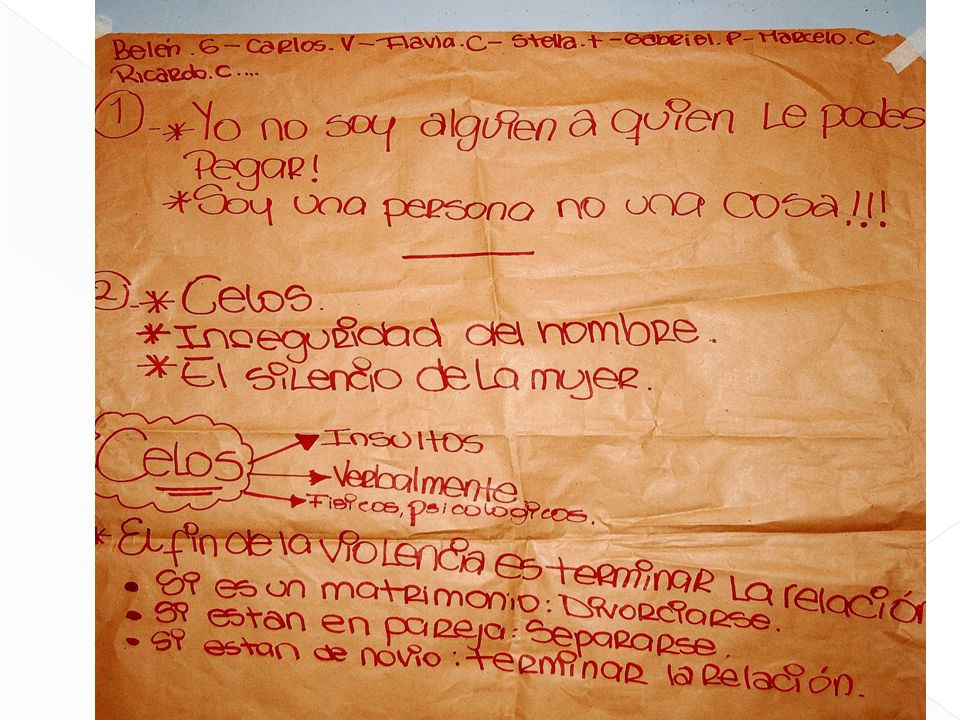 Belén.G - Carlos.V - Flavia.C - Stella.t - Gabriel.P - Marcelo.C
Ricardo.C....
1 - * Yo no soy alguien a quien Le podes
Pegar!
* Soy una persona no una cosa!!!
2) - * Celos.
* Inseguridad del hombre.
* El silencio de La mujer.
Celos
Insultos
Verbalmente
Fisicos, psicologicos.
* El fin de la violencia es terminar La relación
• Si es un matrimonio: Divorciarse.
• Si estan en pareja: Separarse.
• Si estan de novio: terminar la relación.